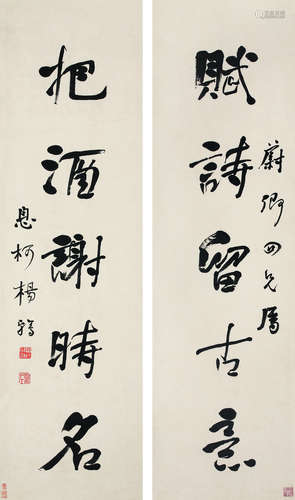 蔚卿四兄屬
賦詩留古意
把酒謝時名
息柯楊翰